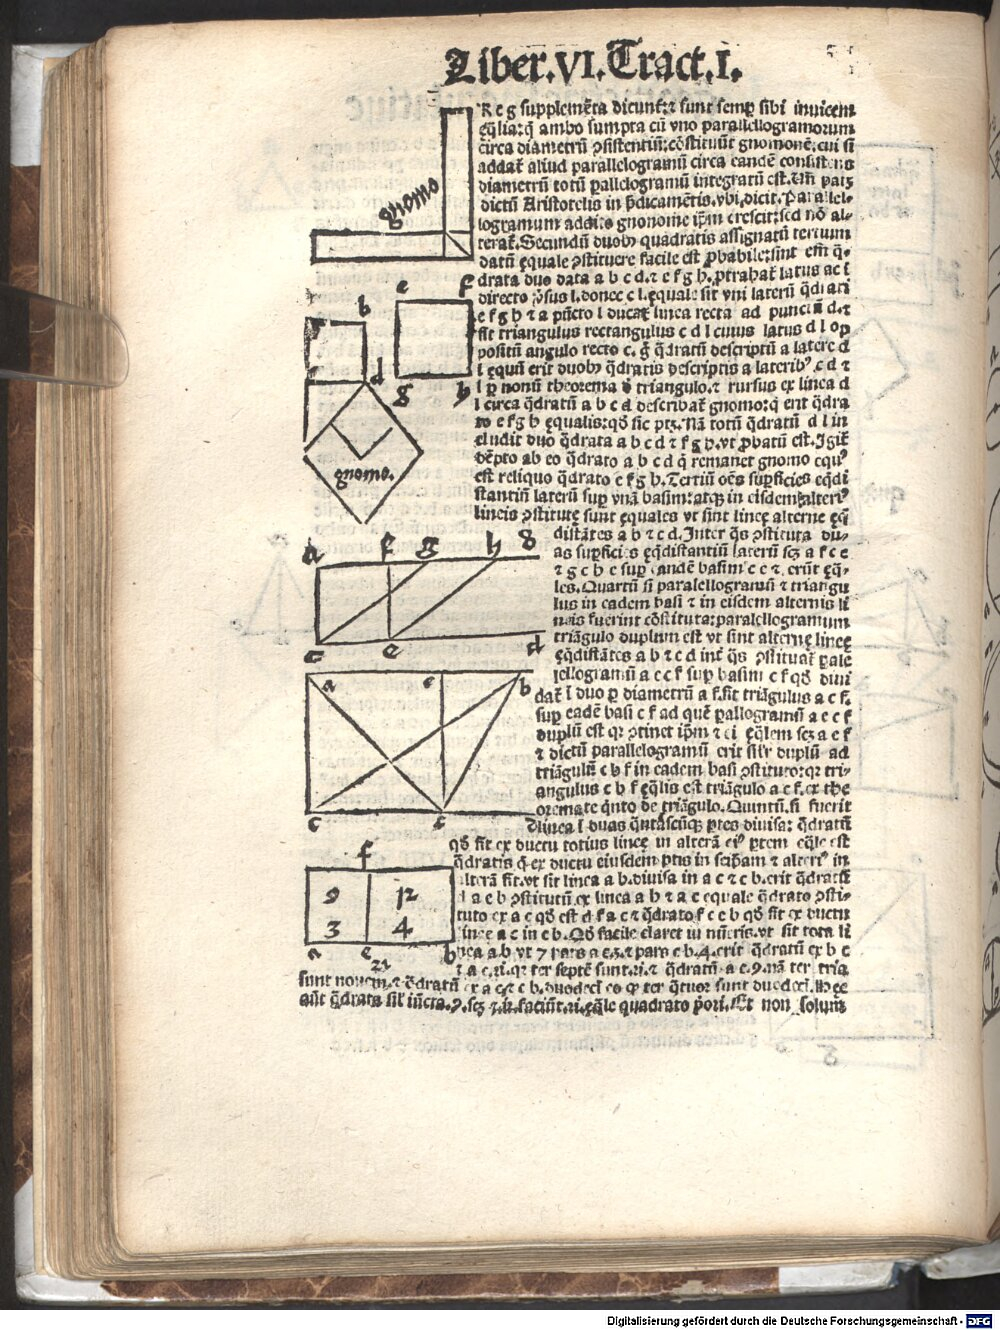 Liber.VI.Tract.I.
R e g supplemẽta dicunt̃:⁊ sunt semp̱ sibi inuicem
eq̃lia:q̃ ambo sumpta cũ vno parallellogramorum
circa diametrũ ꝯsistentiũ:cõstituũt gnomonẽ.cui si
addat̃ aliud parallelogramũ circa eandẽ consistens
diametrũ totũ ꝑallelogramũ integratũ est.Uñ patꝫ
dictũ Aristotelis in p̃dicamẽtis.vbi.dicit.Parallel-
logramum addito gnonome ip̃m crescit:sed nõ al-
terat̃.Secundũ duobꝰ quadratis assignatũ tertium
datũ equale ꝯstituere facile est ꝓbabile:sint em̃ q̃-
drata duo data a b c d.⁊ e f g h.ꝓtrahat̃ latus ac ĩ
directo ꝟsus l.donec c l.equale sit vni laterũ q̃drati
e f g h ⁊ a pũcto l ducat̃ linea recta ad punctũ d.⁊
fit triangulus rectangulus c d l cuius latus d l op
positũ angulo recto c.g̃ q̃dratũ descriptũ a latere d
l equũ erit duobꝰ q̃dratis descriptis a lateribꝰ.c d ⁊
l ꝑ nonũ theorema de triangulo.⁊ rursus ex linea d
l circa q̃dratũ a b c d describat̃ gnomo:q̃ erit q̃dra
to e f g h equalis:qđ sic ptꝫ.Nã totũ q̃dratũ d l in
cludit duo q̃drata a b c d ⁊ f g h.vt ꝓbatũ est.Igit̃
dẽpto ab eo q̃drato a b c d q̃ remanet gnomo equꝰ
est reliquo q̃drato e f g h.Tertiũ oẽs suꝑficies eq̃di
stantiũ laterũ suꝑ vnã basim:atqꝫ in eisdem alterꝰ
lineis ꝯstitute sunt equales vt sint linee alterne eq̃
distãtes a b ⁊ c d.Inter q̃s ꝯstituta du-
as suꝑficies eq̃distantiũ laterũ scꝫ a f c e
⁊ g c h e suꝑ eandẽ basim c e ⁊ erũt eq̃-
les.Quartũ si paralellogramũ ⁊ triangu
lus in eadem basi ⁊ in eisdem alternis li
neis fuerint cõstituta:paralellogramum
triãgulo duplum est vt sint alterne linee
eq̃distãtes a b ⁊ c d int̃ q̃s ꝯstituat̃ ꝑale
lellogramũ a e c f suꝑ basim c f qđ diui
dat̃ ĩ duo ꝑ diametrũ a f.sit triãgulus a c f.
suꝑ eadẽ basi c f ad quẽ ꝑallogramũ a e c f
duplũ est qꝛ ꝯtinet ip̃m ⁊ ei eq̃lem scꝫ a e f
⁊ dictũ parallelogramũ erit sil̃r duplũ ad
triãgulũ c b f in eadem basi ꝯstituto:qꝛ tri-
angulus c b f eq̃lis est triãgulo a c f.ex the
oremate q̃nto de triãgulo.Quintũ.si fuerit
linea ĩ duas q̃ntascũqꝫ ꝑtes diuisa: q̃dratũ
qđ fit ex ductu totius linee in alterã eiꝰ ꝑtem eq̃le est
q̃dratis q̃ ex ductu eiusdem ꝑtis in seip̃am ⁊ alterꝰ in
alterã fit.vt sit linea a b.diuisa in a e ⁊ e b.erit q̃dratũ
d a e b ꝯstitutũ ex linea a b ⁊ a e equale q̃drato ꝯsti-
tuto ex a e qđ est d f a e ⁊ q̃drato f c e b qđ fit ex ductu
linee a e in e b.Qđ facile claret in nũeris.vt sit tota li
nea a b vt 7 pars a e.3.⁊ pars e b.4.erit q̃dratũ ex b e
⁊ a e.21.qꝛ ter septẽ sunt.21.⁊ q̃dratũ a e.9.nã ter tria
sunt nouem.⁊ q̃dratũ ex a e ⁊ e b.duodeci eo qꝛ ter q̃tuor sunt duodeci.Hec
aũt q̃drata sil̃ iũcta.9.scꝫ ⁊.12.faciũt.21.eq̃le quadrato p̃ori.Et non solum
gnomo
b
e
f
d
g
h
gnomo.
a
f
g
h
b
c
e
d
a
e
b
c
f
d
f
9
12
3
4
a
e
b
21
Digitalisierung gefördert durch die Deutsche Forschungsgemeinschaft - DFG